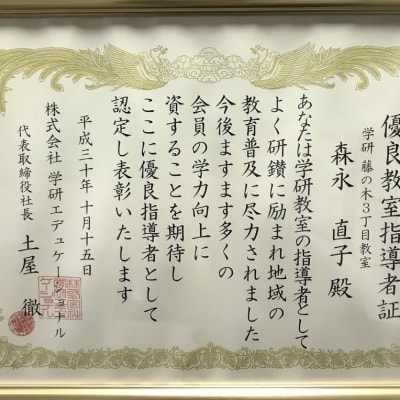 優良教室指導者証
学研 藤の木3丁目教室
森永 直子 殿
あなたは学研教室の指導者として
よく研鑽に励まれ地域の
教育普及に尽力されました
今後ますます多くの
会員の学力向上に
資することを期待し
ここに優良指導者として
認定し表彰いたします
平成三十年 十月十五日
株式会社 学研エデュケーショナル
代表取締役社長 土屋 徹